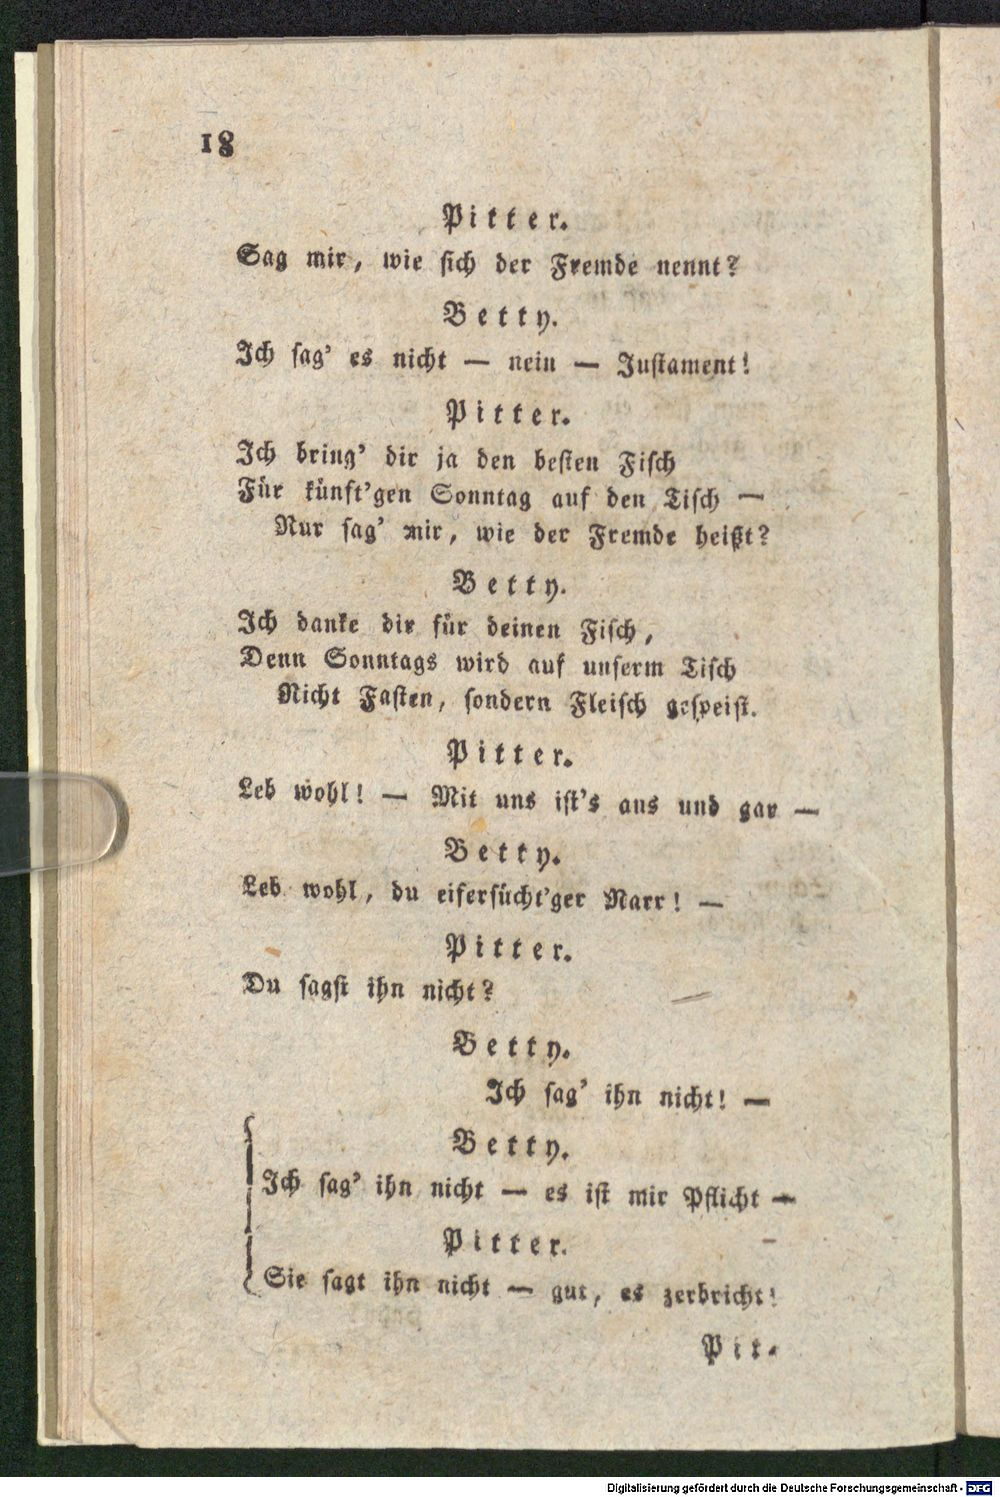 18
Pitter.
Sag mir, wie sich der Fremde nennt?
Betty.
Ich sag' es nicht — nein — Justament!
Pitter.
Ich bring' dir ja den besten Fisch
Für künft'gen Sonntag auf den Tisch —
Nur sag' mir, wie der Fremde heißt?
Betty.
Ich danke dir für deinen Fisch,
Denn Sonntags wird auf unserm Tisch
Nicht Fasten, sondern Fleisch gespeist.
Pitter.
Leb wohl! — Mit uns ist's aus und gar —
Betty.
Leb wohl, du eifersücht'ger Narr! —
Pitter.
Du sagst ihn nicht?
Betty.
Ich sag' ihn nicht! —
Betty.
Ich sag' ihn nicht — es ist mir Pflicht —
Pitter.
Sie sagt ihn nicht — gut, es zerbricht!
Pit-
Digitalisierung gefördert durch die Deutsche Forschungsgemeinschaft - DFG